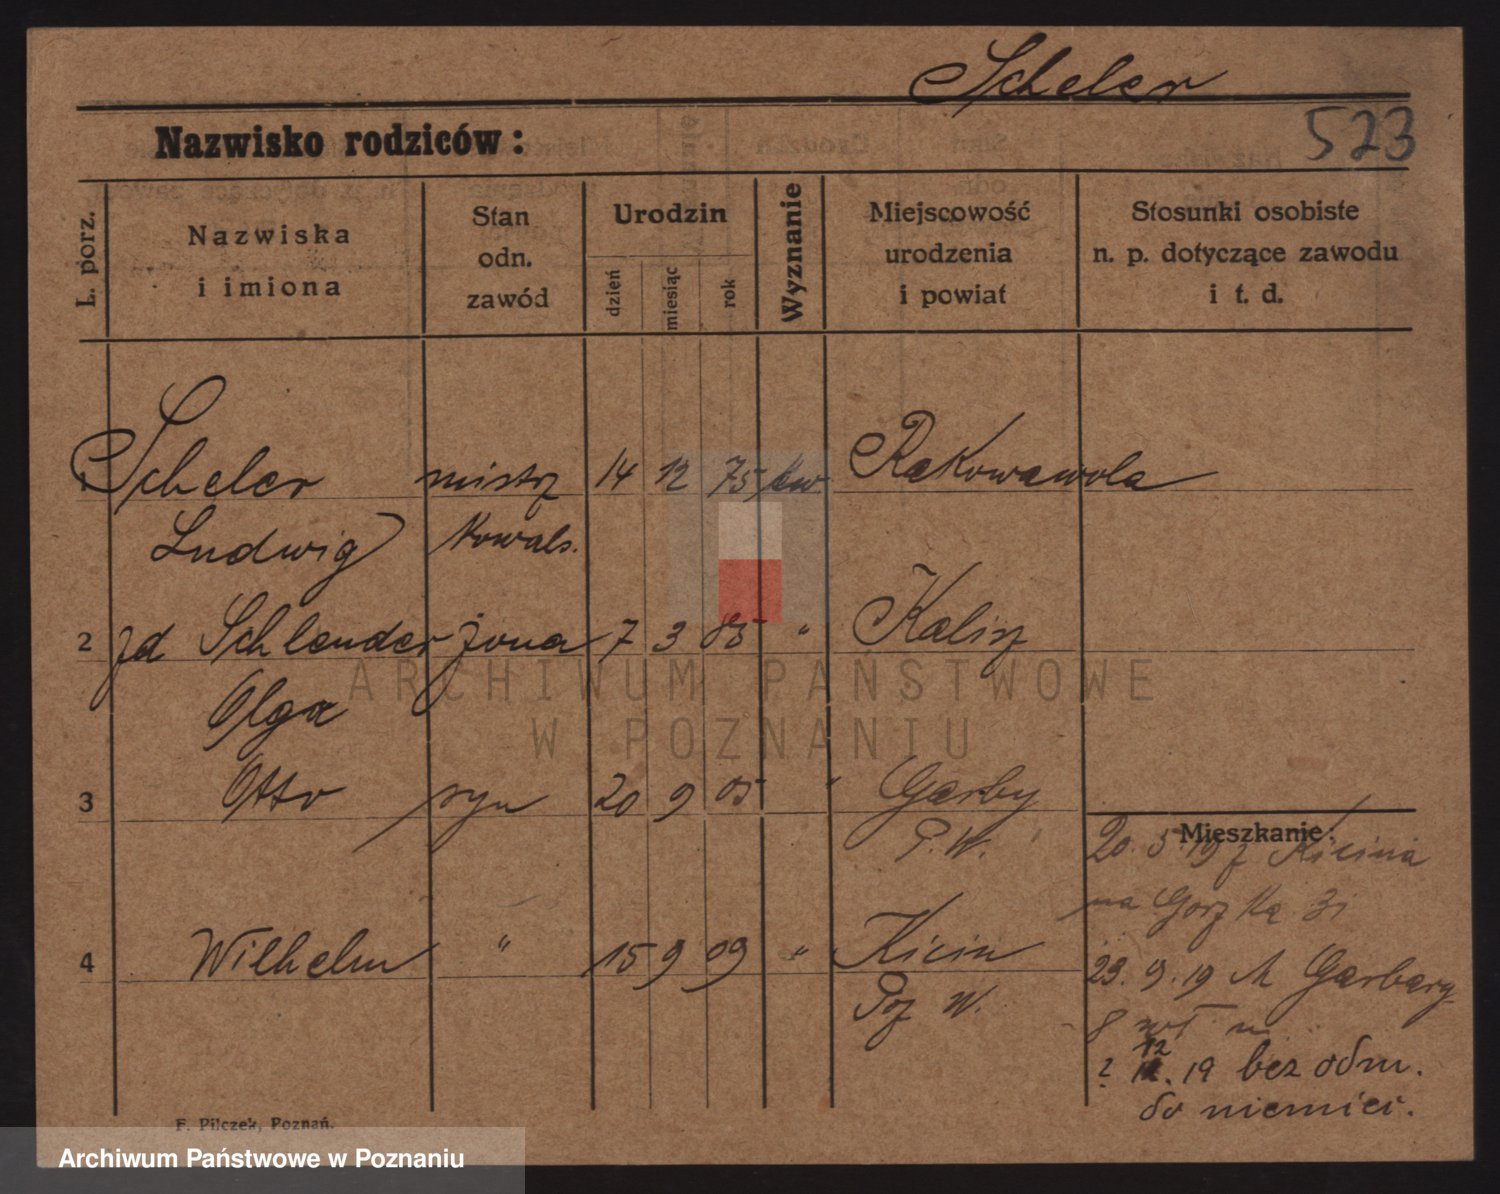 Scheler
523
Nazwisko rodziców:
L. porz.
Nazwiska
i imiona
Stan
odn.
zawód
Urodzin
dzień
miesiąc
rok
Wyznanie
Miejscowość
urodzenia
i powiat
Stosunki osobiste
n. p. dotyczące zawodu
i t. d.
1 Scheler mistrz 14 12 75 ew. Rakowawola
Ludwig kowals.
2 zd Schlender żona 7 3 85 " Kalisz
Olga
3 Otto syn 20 9 05 " Garby
P. W.
4 Wilhelm " 15 9 09 " Kicin
Poz W.
Mieszkanie:
20. 5. 19 z Kicina
na Gorzką 31
29. 9. 19 Garbary
8
2. 12. 19 bez odm.
do niemiec.
F. Pilczek, Poznań.
ARCHIWUM PAŃSTWOWE
W POZNANIU
Archiwum Państwowe w Poznaniu